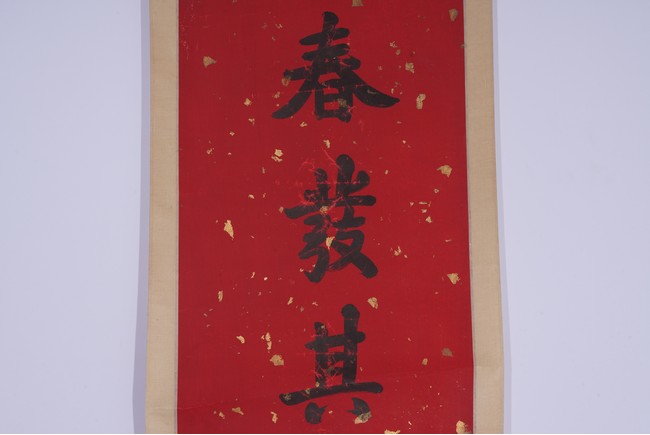 春發其